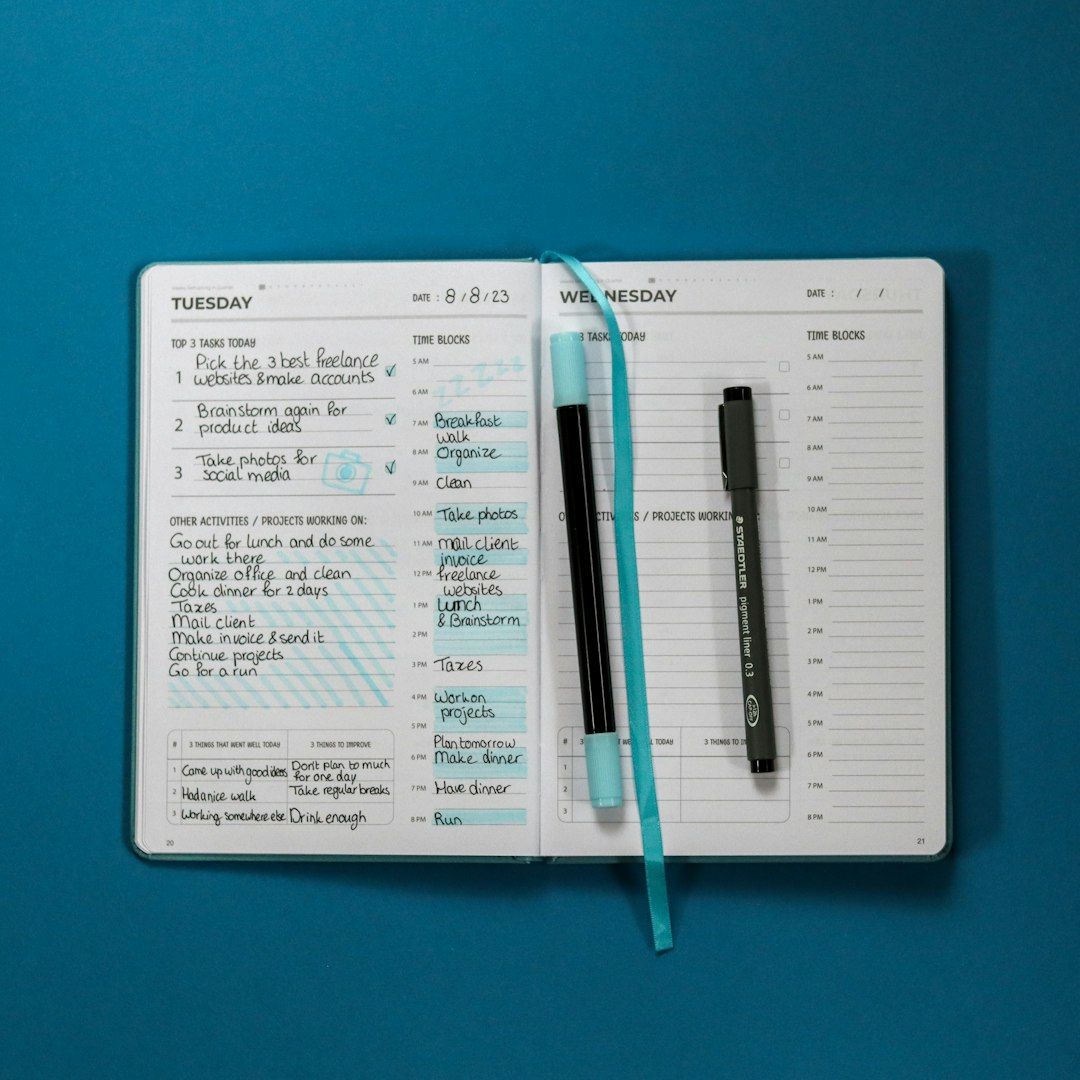 TUESDAY
DATE : 8/8/23
TOP 3 TASKS TODAY
Pick the 3 best freelance
1 websites & make accounts
Brainstorm again for
2 product ideas
Take photos for
3 social media
OTHER ACTIVITIES / PROJECTS WORKING ON:
Go out for lunch and do some
work there
Organize office and clean
Cook dinner for 2 days
Taxes
Mail client
Make invoice & send it
Continue projects
Go for a run
# 3 THINGS THAT WENT WELL TODAY 3 THINGS TO IMPROVE
1 Came up with good ideas Don't plan to much
for one day
2 Had a nice walk Take regular breaks
3 Working somewhere else Drink enough
20
TIME BLOCKS
5 AM
ZZZZZ
6 AM
7 AM Breakfast
walk
8 AM Organize
9 AM Clean
10 AM Take photos
11 AM mail client
invoice
12 PM freelance
websites
1 PM Lunch
& Brainstorm
2 PM
3 PM Taxes
4 PM Work on
projects
5 PM
Plan tomorrow
6 PM Make dinner
7 PM Have dinner
8 PM Run
WE NESDAY
DATE : / /
3 TASKS ODAY
O CTIVITIES / PROJECTS WORKIN
# 3 WELL TODAY 3 THINGS TO
1
2
3
TIME BLOCKS
5 AM
6 AM
7 AM
8 AM
9 AM
10 AM
11 AM
12 PM
1 PM
2 PM
3 PM
4 PM
5 PM
6 PM
7 PM
8 PM
21
STAEDTLER pigment liner 0.3